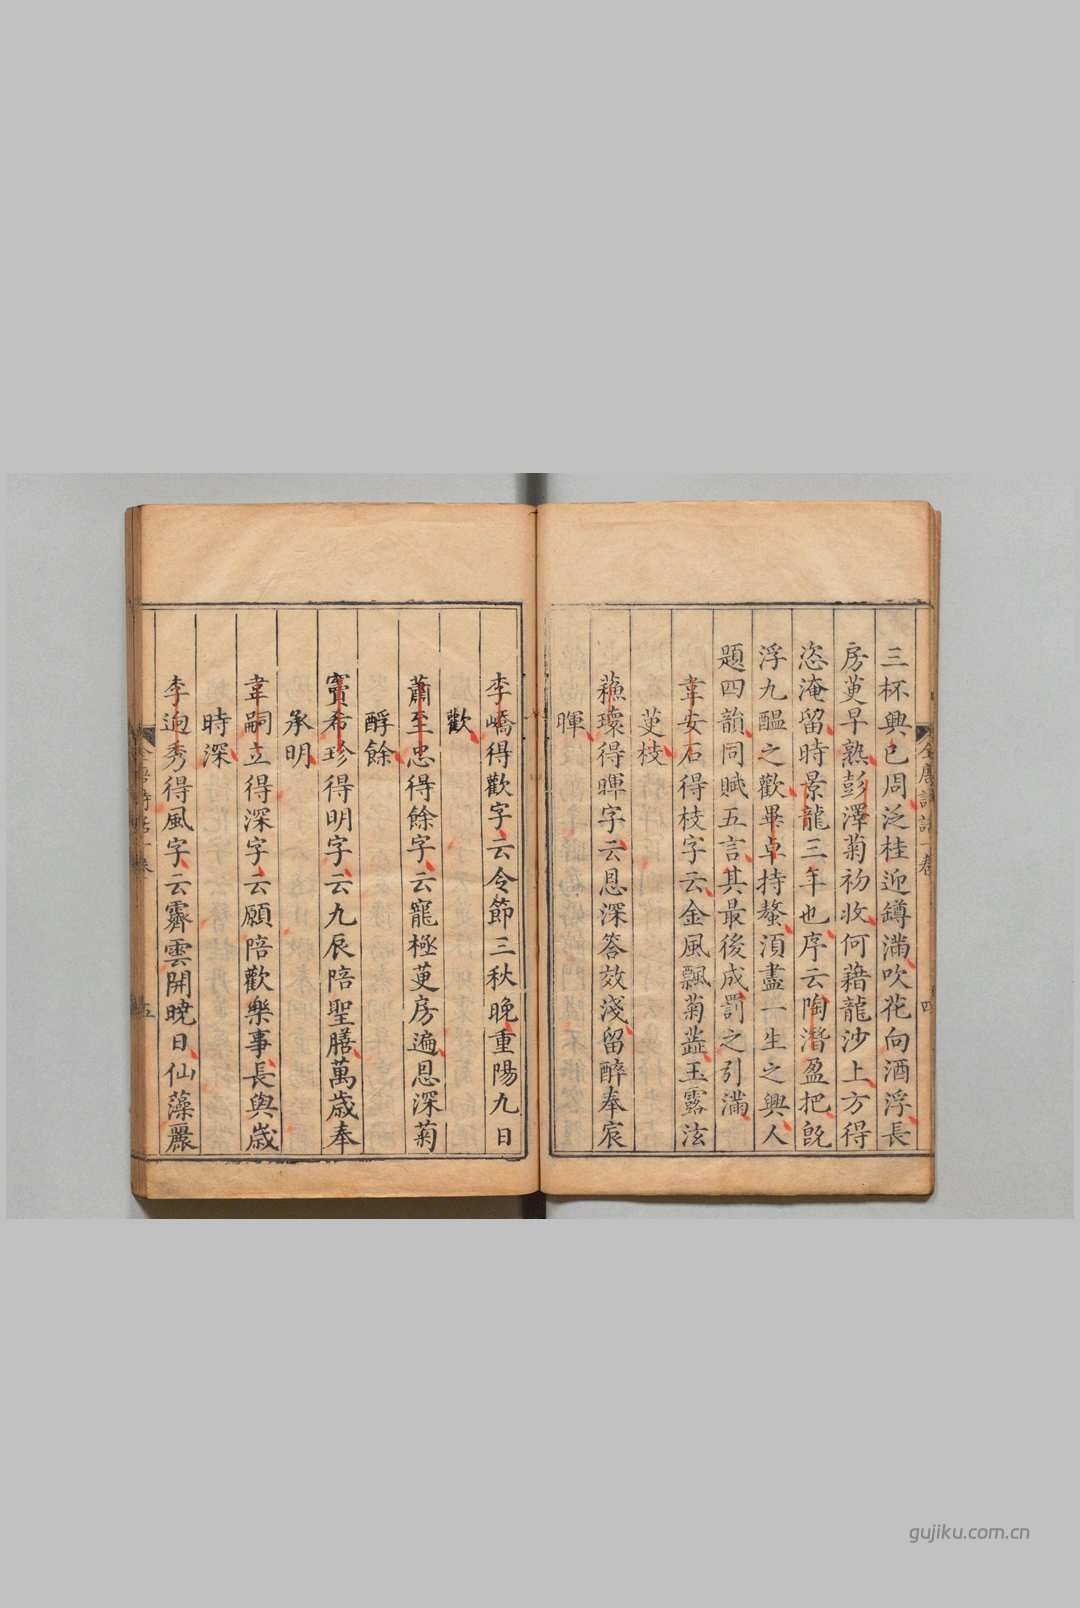 三杯興已周泛桂迎罇滿吹花向酒浮長
房萸早熟彭澤菊初收何藉龍沙上方得
恣淹留時景龍三年也序云陶潛盈把旣
浮九醞之歡畢卓持螯湏盡一生之興人
題四韻同賦五言其最後成罰之引滿
韋安石得枝字云金風飄菊蘂玉露泫
萸枝
蘓瓌得暉字云恩深答效淺留醉奉宸
暉
李嶠得歡字云令節三秋晚重陽九日
歡
蕭至忠得餘字云寵極萸房遍恩深菊
酹餘
竇希玠得明字云九辰陪聖膳萬歲奉
承明
韋嗣立得深字云願陪歡樂事長與歲
時深
李逈秀得風字云霽雲開曉日仙藻麗
全唐詩話一卷
四
五
gujiku.com.cn